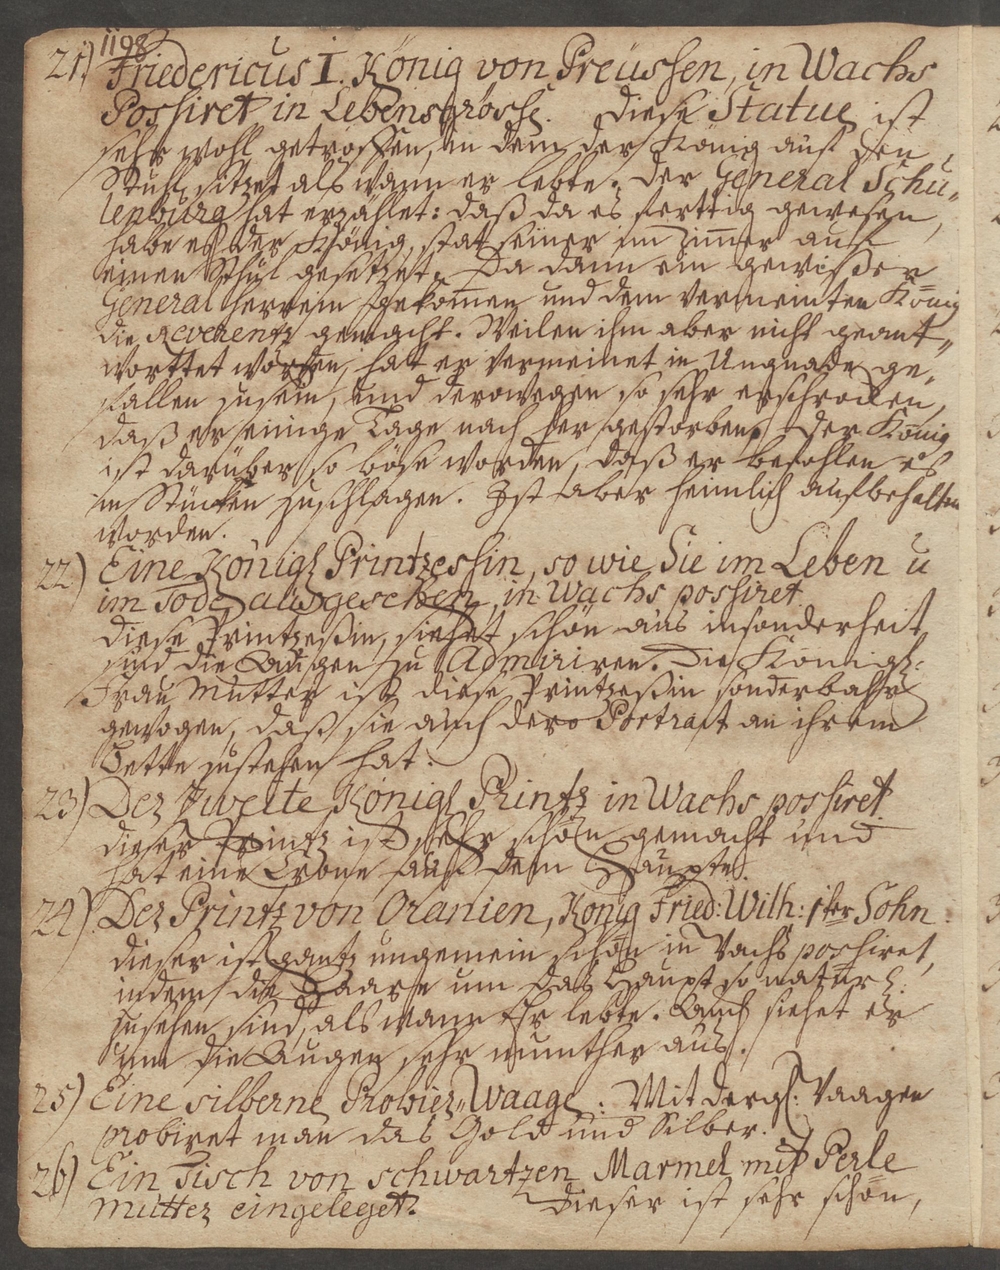 1198
21) Friedericus I. König von Preüssen, in Wachs
Possiret in Lebensgrösse. Diese Statue ist
sehr wohl getroffen, in dem der König auf den
Stuhl sitzet als wann er lebte. Der General Schu-
lenburg hat erzählet: daß da es ferttig gewesen,
habe es der König, stat seiner im Zimmer auf
einen Stuhl gesetzet. Da dann ein gewißer
General herrein gekom̅en und dem vermeinten König
die Reverentz gemacht. Weilen ihm aber nicht geant-
worttet worden, hat er vermeinet in Ungnade ge-
fallen zu sein, und derowegen so sehr erschrocken,
daß er einige Tage nach her gestorben. Der König
ist darüber so böse worden, daß er befohlen es
in Stücken zuschlagen. Ist aber heimlich aufbehalten
worden.
22) Eine Königl Printzessin, so wie Sie im Leben u
im Tode ausgesehen, in Wachs possiret
diese Printzeßin, siehet schön aus insonderheit
sind die Augen zu Admiriren. Die Königl:
Frau Mutter ist diese Printzeßin sonderbahr
gewogen, daß sie auch dero Portrait an ihrem
Bette zustehen hat.
23) Der Zweite Königl Printz in Wachs possiret.
dieser Printz ist sehr schön gemacht und
hat eine Crone auf dem Haupte.
24) Der Printz von Oranien, König Fried: Wilh: 1ter Sohn.
dieser ist gantz ungemein schön in Wachs possiret,
indem die Haare um das Haupt so natürl:
zusehen sind, als wann Er lebte. Auch siehet er
um die Augen sehr munther aus.
25) Eine silberne Probier-Waage. Mit dergl: Waagen
probiret man das Gold und Silber.
26) Ein Tisch von schwartzen Marmel mit Perle
mutter eingeleget. Dieser ist sehr schön,